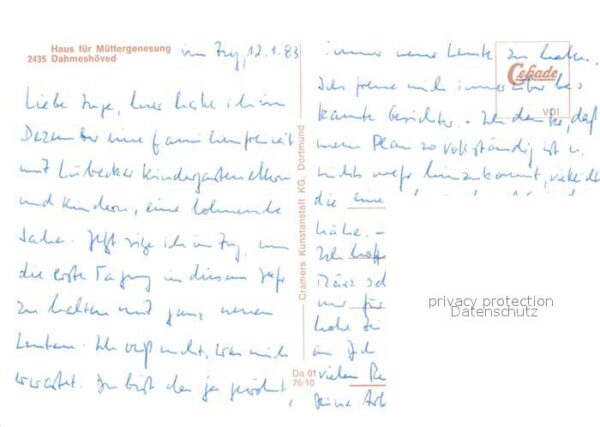 Haus für Müttergenesung
2435 Dahmeshöved
im Zug, 12.1.83
Liebe Inge, hier habe ich im
Dezember eine Familienfreizeit
mit Lübecker Kindergarteneltern
und Kindern, eine lohnende
Sache. Jetzt sitze ich im Zug, um
die erste Tagung in diesem Jahr
zu halten mit ganz neuen
Leuten. Ich weiß nicht, was mich
erwartet. Du bist das ja gewöhnt,
immer neue Leute zu haben.
Ich freue mich immer über be
kannte Gesichter. - Ich denke, daß
mein Plan so vollständig ist u.
nichts mehr hinzukommt,
die eine
Ich hoff
März
nur für
habe
an
vielen
Deine Arb
Cramers Kunstanstalt KG, Dortmund
Da 01
76/10
Cekade
VDI
privacy protection
Datenschutz